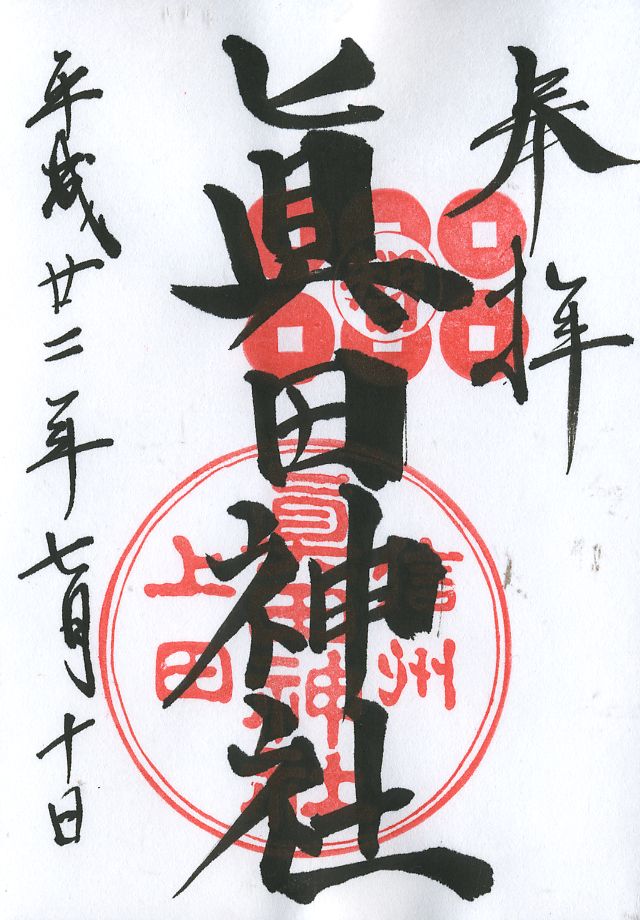 奉拝
眞田神社
信州
眞田神社
上田
平成廿二年七月十日